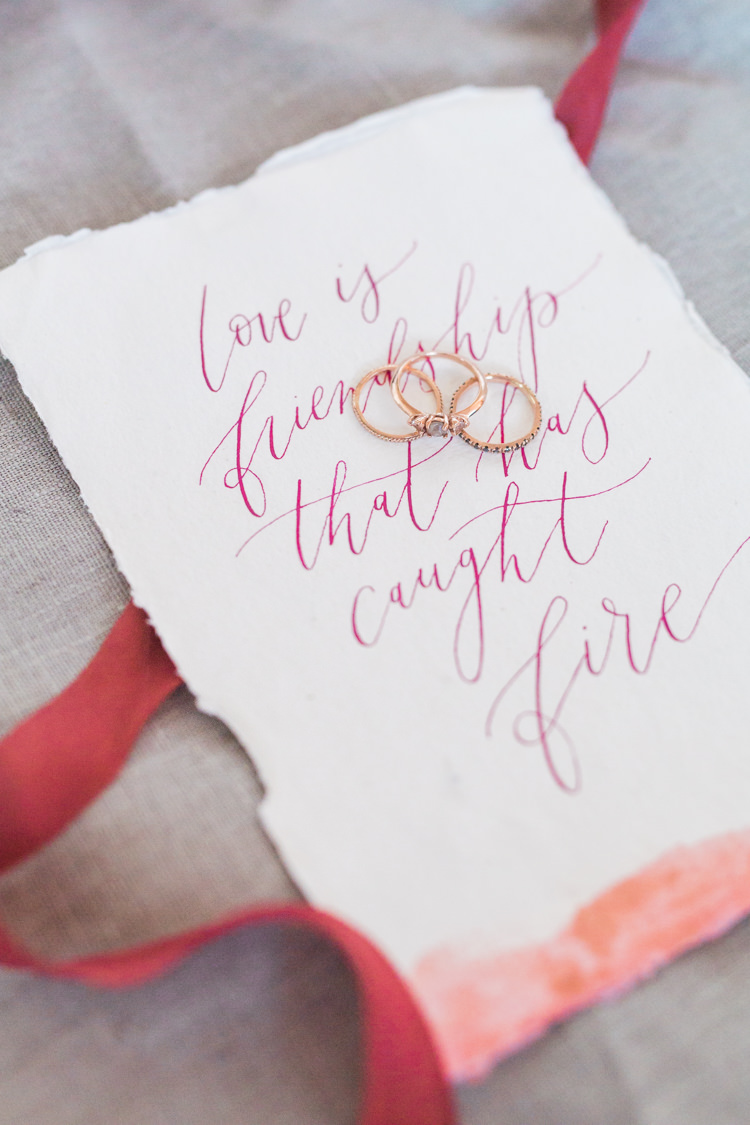 love is
friendship
that has
caught
fire